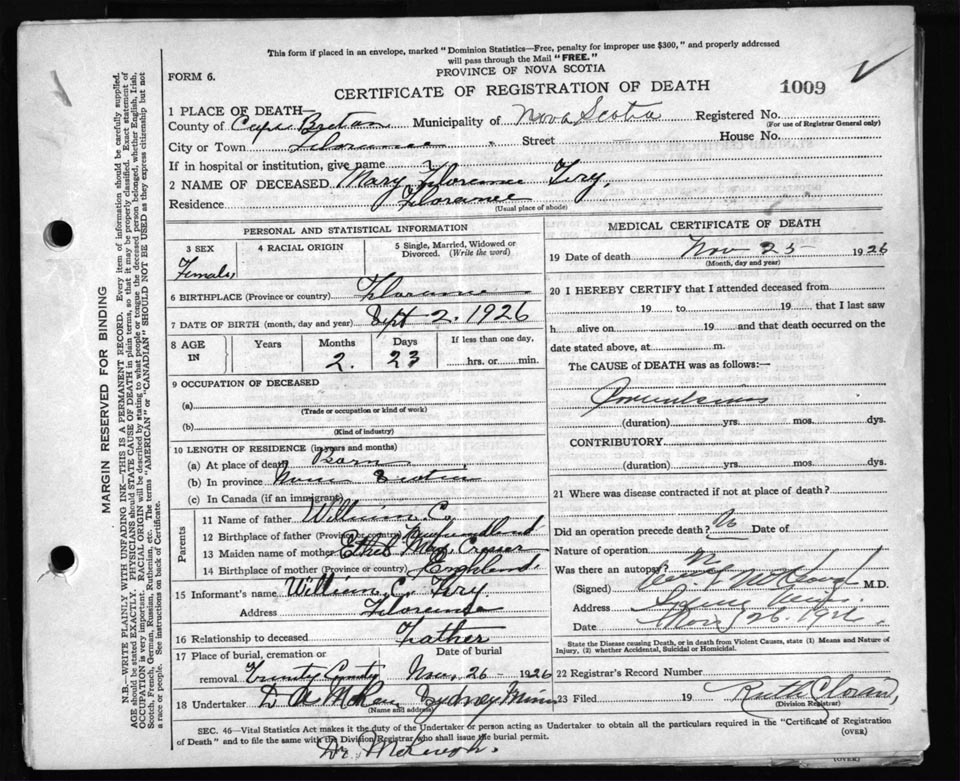 This form if placed in an envelope, marked "Dominion Statistics—Free, penalty for improper use $300," and properly addressed
will pass through the Mail "FREE."
FORM 6.
PROVINCE OF NOVA SCOTIA
CERTIFICATE OF REGISTRATION OF DEATH
1009
1 PLACE OF DEATH—
County of Cape Breton Municipality of Nova Scotia Registered No.
(For use of Registrar General only)
City or Town Florence Street House No.
If in hospital or institution, give name
2 NAME OF DECEASED Mary Florence
Residence Florence
(Usual place of abode)
MARGIN RESERVED FOR BINDING
N.B.—WRITE PLAINLY WITH UNFADING INK—THIS IS A PERMANENT RECORD. Every item of information should be carefully supplied.
AGE should be stated EXACTLY. PHYSICIANS should STATE CAUSE OF DEATH in plain terms, so that it may be properly classified. Exact statement of
OCCUPATION is very important. RACIAL ORIGIN will be described by stating to what people or tongue the deceased person belonged, whether English, Irish,
Scotch, French, German, Russian, Ruthenian, etc. The terms "AMERICAN" or "CANADIAN" SHOULD NOT BE USED as they express citizenship but not
a race or people. See instructions on back of Certificate.
PERSONAL AND STATISTICAL INFORMATION
3 SEX
Female
4 RACIAL ORIGIN
5 Single, Married, Widowed or
Divorced. (Write the word)
6 BIRTHPLACE (Province or country) Florence
7 DATE OF BIRTH (month, day and year) Sept 2. 1926
8 AGE
IN
Years
Months
2.
Days
23
If less than one day,
hrs. or min.
9 OCCUPATION OF DECEASED
(a)
(Trade or occupation or kind of work)
(b)
(Kind of industry)
10 LENGTH OF RESIDENCE (in years and months)
(a) At place of death Born
(b) In province Nova Scotia
(c) In Canada (if an immigrant)
Parents
11 Name of father William C.
12 Birthplace of father (Province or country) Newfoundland
13 Maiden name of mother Ethel May
14 Birthplace of mother (Province or country) England
15 Informant's name William C.
Address Florence
16 Relationship to deceased Father
17 Place of burial, cremation or
Date of burial
removal Trinity Nov. 26 - 1926
18 Undertaker Sydney Mines
(Name and address)
MEDICAL CERTIFICATE OF DEATH
19 Date of death Nov 25 1926
(Month, day and year)
20 I HEREBY CERTIFY that I attended deceased from
19 to 19 that I last saw
h alive on 19 and that death occurred on the
date stated above, at m.
The CAUSE of DEATH was as follows:—
(duration) yrs. mos. dys.
CONTRIBUTORY
(duration) yrs. mos. dys.
21 Where was disease contracted if not at place of death?
Did an operation precede death? No Date of
Nature of operation
Was there an autopsy? No
(Signed) M.D.
Address Sydney Mines
Date Nov. 26. 1926
State the Disease causing Death, or in death from Violent Causes, state (1) Means and Nature of
Injury, (2) whether Accidental, Suicidal or Homicidal.
22 Registrar's Record Number
23 Filed 19 Ruth
(Division Registrar)
SEC. 46—Vital Statistics Act makes it the duty of the Undertaker or person acting as Undertaker to obtain all the particulars required in the "Certificate of Registration
of Death" and to file the same with the Division Registrar who shall issue the burial permit.
(OVER)
Dr. McKeough.
(OVER)